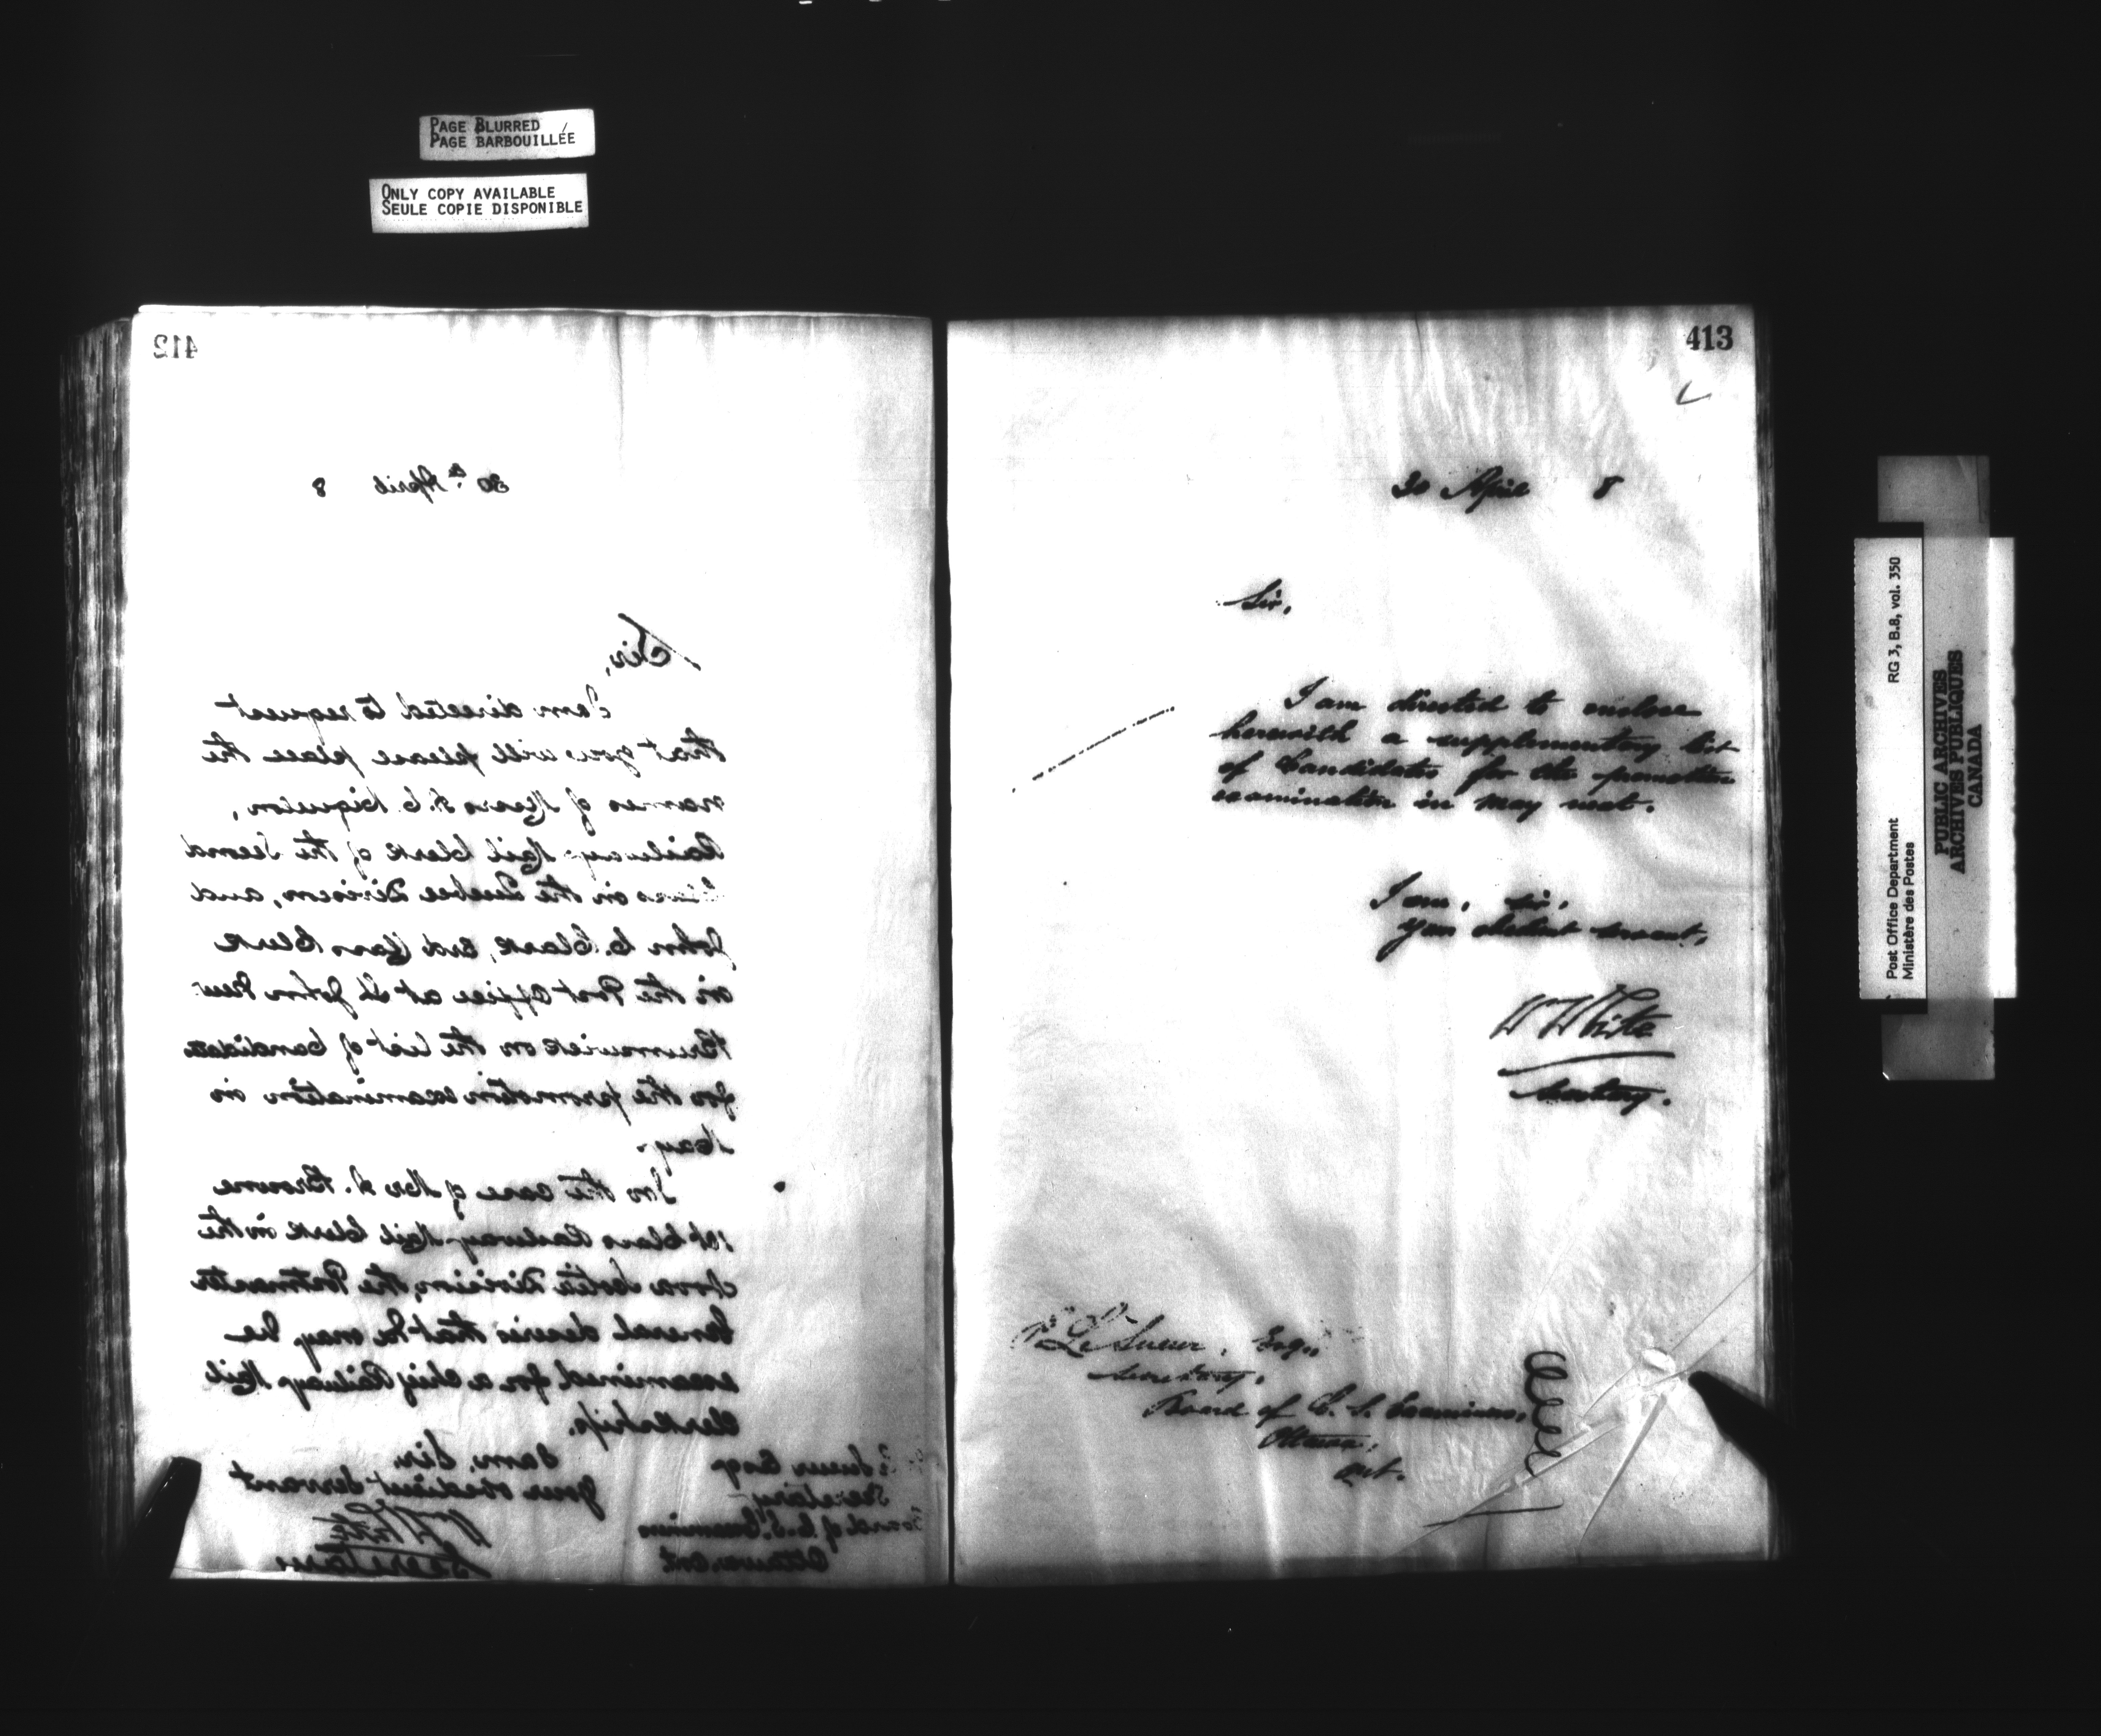 PAGE BLURRED
PAGE BARBOUILLÉE
ONLY COPY AVAILABLE
SEULE COPIE DISPONIBLE
412
30th April 8
Sir,
I am directed to request
that you will please place the
names of Messrs
Railway Mail Clerk of the Second
Class in the Quebec Division, and
John C. Clark, 3rd Class Clerk
in the Post Office at St John New
Brunswick on the list of Candidates
for the promotion examination in
May.
In the case of Mr D. Browne
1st Class Railway Mail Clerk in the
Nova Scotia Division, the Postmaster
General desires that he may be
examined for a Chief Railway Mail
Clerkship.
I am, Sir,
your obedient Servant
WWhite
Secretary
LeSueur Esqr
Secretary
Board of C. S. Examiners
Ottawa, Ont
413
30 April 8
Sir,
I am directed to enclose
herewith a supplementary list
of Candidates for the promotion
examination in May next.
I am, Sir,
Your obedient servant,
WWhite
Secretary.
P. LeSueur, Esqr.
Secretary,
Board of C. S. Examiners,
Ottawa,
Ont.
Post Office Department
Ministère des Postes
RG 3, B.8, vol. 350
PUBLIC ARCHIVES
ARCHIVES PUBLIQUES
CANADA